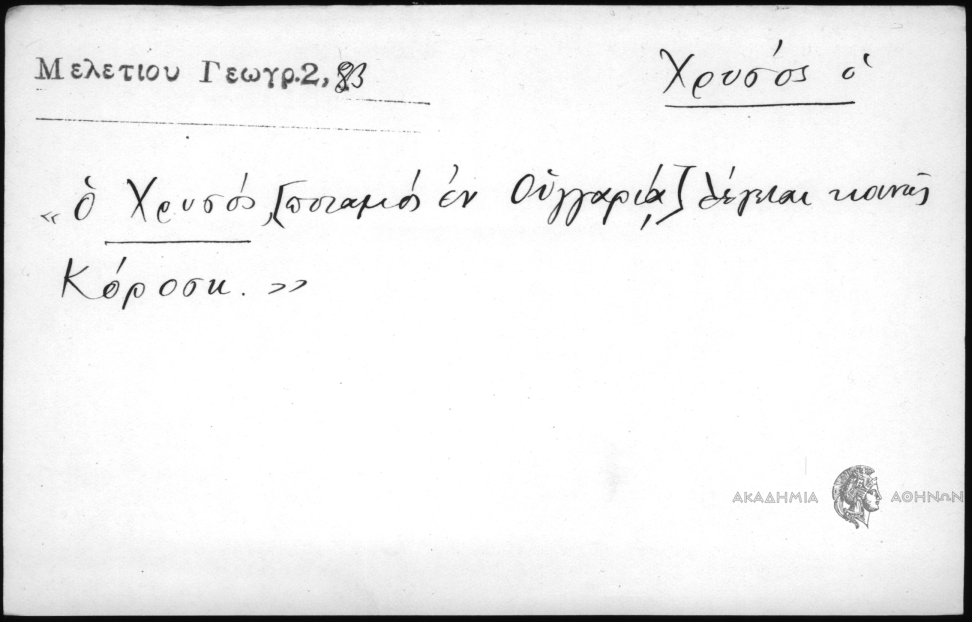 Μελετιου Γεωγρ.2, 83
Χρυσός ὁ
«ὁ Χρυσός, [ποταμός ἐν Οὑγγαρίᾳ] λέγεται κοινῶς
Κόροσκ. »
ΑΚΑΔΗΜΙΑ ΑΘΗΝΩΝ